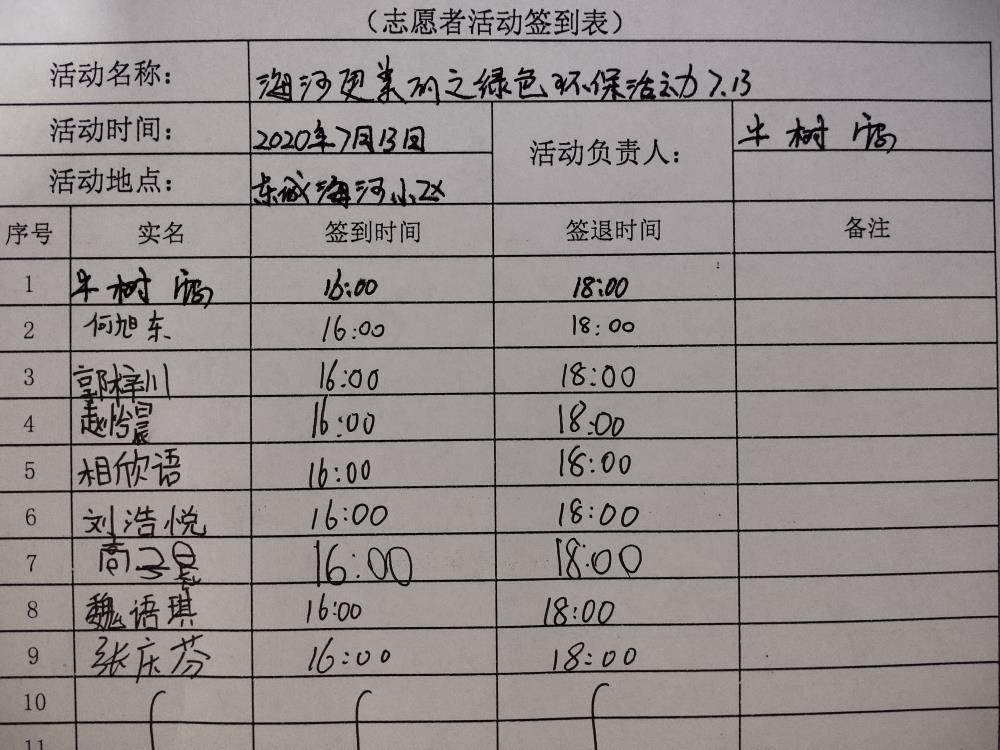 （志愿者活动签到表）
活动名称： 海河更美丽之绿色环保活动7.13
活动时间： 2020年7月13日 活动负责人： 牛树
活动地点： 东城海河小区
序号 实名 签到时间 签退时间 备注
1 牛树 16:00 18:00
2 何旭东 16:00 18:00
3 郭梓川 16:00 18:00
4 赵怡晨 16:00 18:00
5 相欣语 16:00 18:00
6 刘浩悦 16:00 18:00
7 高子 16:00 18:00
8 魏语琪 16:00 18:00
9 张庆芬 16:00 18:00
10
11